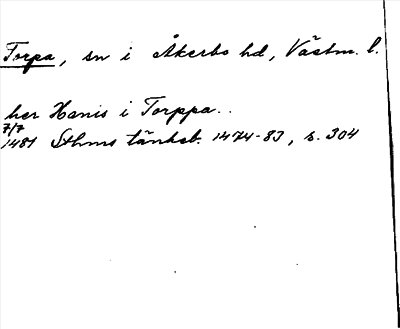 Torpa, sn i Åkerbo hd, Västm. l.
her Hanis i Torppa..
7/7
1481 Sthms tänkeb. 1474-83, s. 304